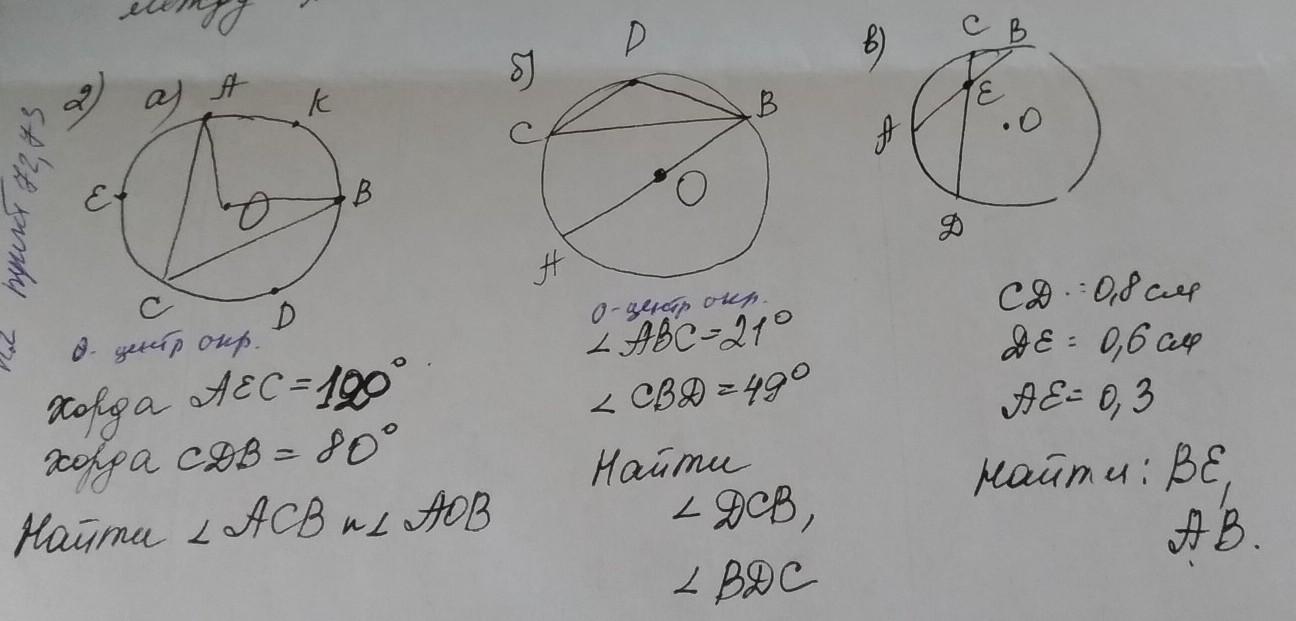 между
пункт 72, 73
2) а)
A
K
E
O
B
C
D
О - центр окр.
хорда AEC = 120°
хорда CDB = 80°
Найти ∠ ACB и ∠ AOB
б)
D
C
B
O
A
О - центр окр.
∠ ABC = 21°
∠ CBD = 49°
Найти
∠ DCB,
∠ BDC
в)
C B
E
A
O
D
CD = 0,8 см
DE = 0,6 см
AE = 0,3
Найти: BE,
AB.